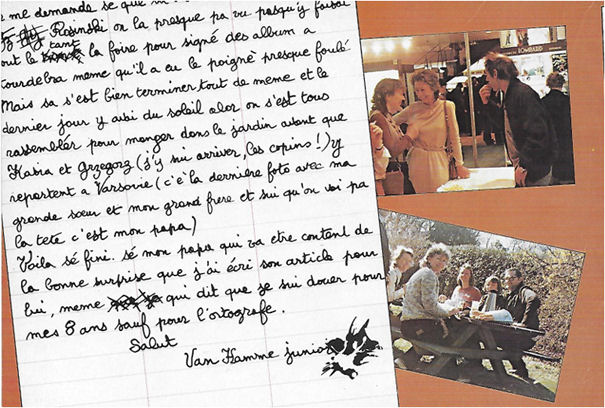 me demande se que
Rosinski on la presque pa vu pasqu'y faisai
tout le tant la foire pour signé des album a
tourdebra meme qu'il a eu le poigné presque foulé.
Mais sa s'est bien terminer tout de meme et le
dernier jour y a bi du soleil alor on s'est tous
rassemblér pour menger dans le jardin avent que
Kabia et Grzegorz (j'y sui arriver, les copins !) y
repartent a Varsovie (c'é la dernière foto avec ma
grende sœur et mon grend frere et sui qu'on voi pa
la tete c'est mon papa)
Voila sé fini. sé mon papa qui va etre content de
la bonne surprise que j'ai écri son article pour
lui, meme qui dit que je sui douer pour
mes 8 ans sauf pour l'ortografe.
Salut
Van Hamme junior
LOMBARD